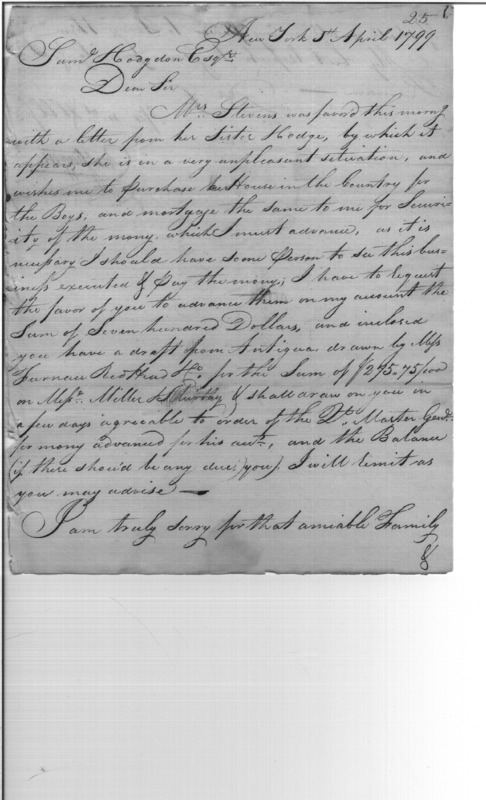 25
New York 5th April 1799
Saml Hodgdon Esqr.
Dear Sir
Mrs. Stevens was favord this morng
with a letter from her Sister Hodge, by which it
appears, she is in a very unpleasant situation, and
wishes me to purchase a House in the Country for
the Boys, and mortgage the same to me for Secur-
ity of the mony which I must advance, as it is
necessary I should have some Person to see this bus-
iness executed & Pay the mony; I have to request
the favor of you to advance them on my account the
Sum of Seven hundred Dollars, and inclosed
you have a draft from Antigua drawn by Mess
Furnace Redhead & Co. for the Sum of $295.75/100
on Messrs. Miller & Murray I shall draw on you in
a few days agreeable to order of the Dr. Master
for mony advanced for his acct., and the Balance
(if there shou'd be any due you) I will remit as
you may advise —
I am truly sorry for that amiable Family
&